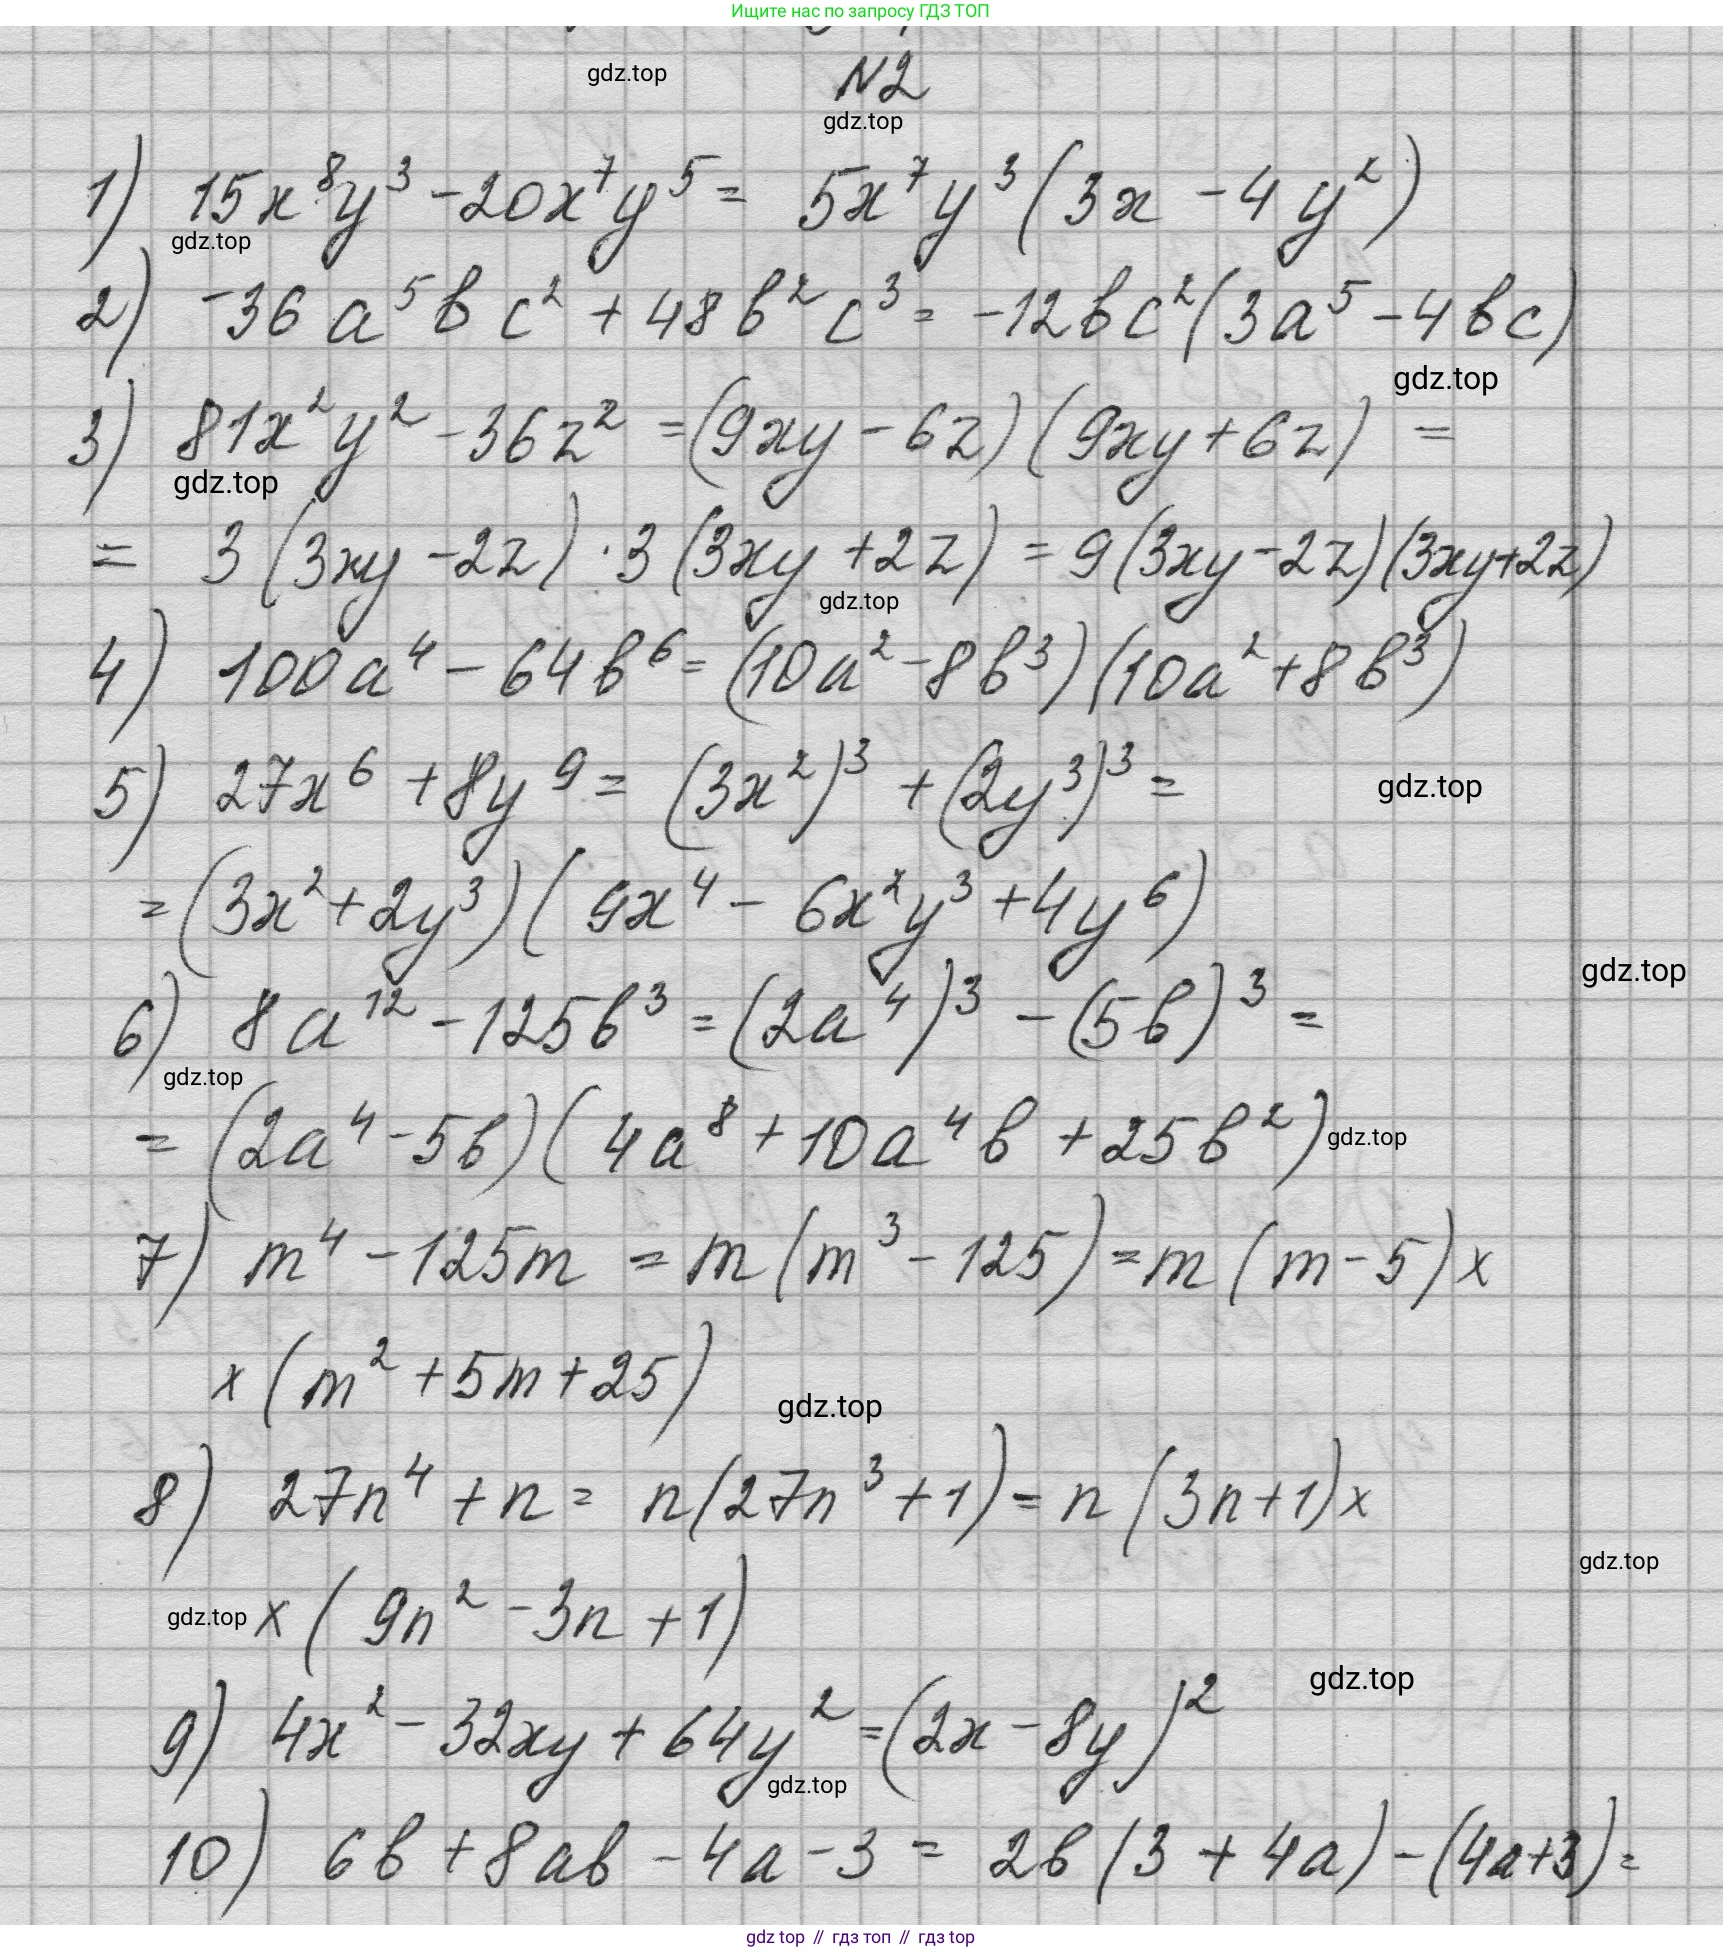 Ищите нас по запросу ГДЗ ТОП
gdz.top
N2
gdz.top
1) 15x⁸y³ - 20x⁷y⁵ = 5x⁷y³(3x - 4y²)
gdz.top
2) -36a⁵bc² + 48b²c³ = -12bc²(3a⁵ - 4bc)
gdz.top
3) 81x²y² - 36z² = (9xy - 6z)(9xy + 6z) =
gdz.top
= 3(3xy - 2z) · 3(3xy + 2z) = 9(3xy - 2z)(3xy + 2z)
gdz.top
4) 100a⁴ - 64b⁶ = (10a² - 8b³)(10a² + 8b³)
5) 27x⁶ + 8y⁹ = (3x²)³ + (2y³)³ =
gdz.top
= (3x² + 2y³)(9x⁴ - 6x²y³ + 4y⁶)
gdz.top
6) 8a¹² - 125b³ = (2a⁴)³ - (5b)³ =
gdz.top
= (2a⁴ - 5b)(4a⁸ + 10a⁴b + 25b²)
gdz.top
7) m⁴ - 125m = m(m³ - 125) = m(m - 5) x
x (m² + 5m + 25)
gdz.top
8) 27n⁴ + n = n(27n³ + 1) = n(3n + 1) x
gdz.top
gdz.top x (9n² - 3n + 1)
gdz.top
9) 4x² - 32xy + 64y² = (2x - 8y)²
gdz.top
10) 6b + 8ab - 4a - 3 = 2b(3 + 4a) - (4a + 3) =
gdz top // гдз топ // гдз top